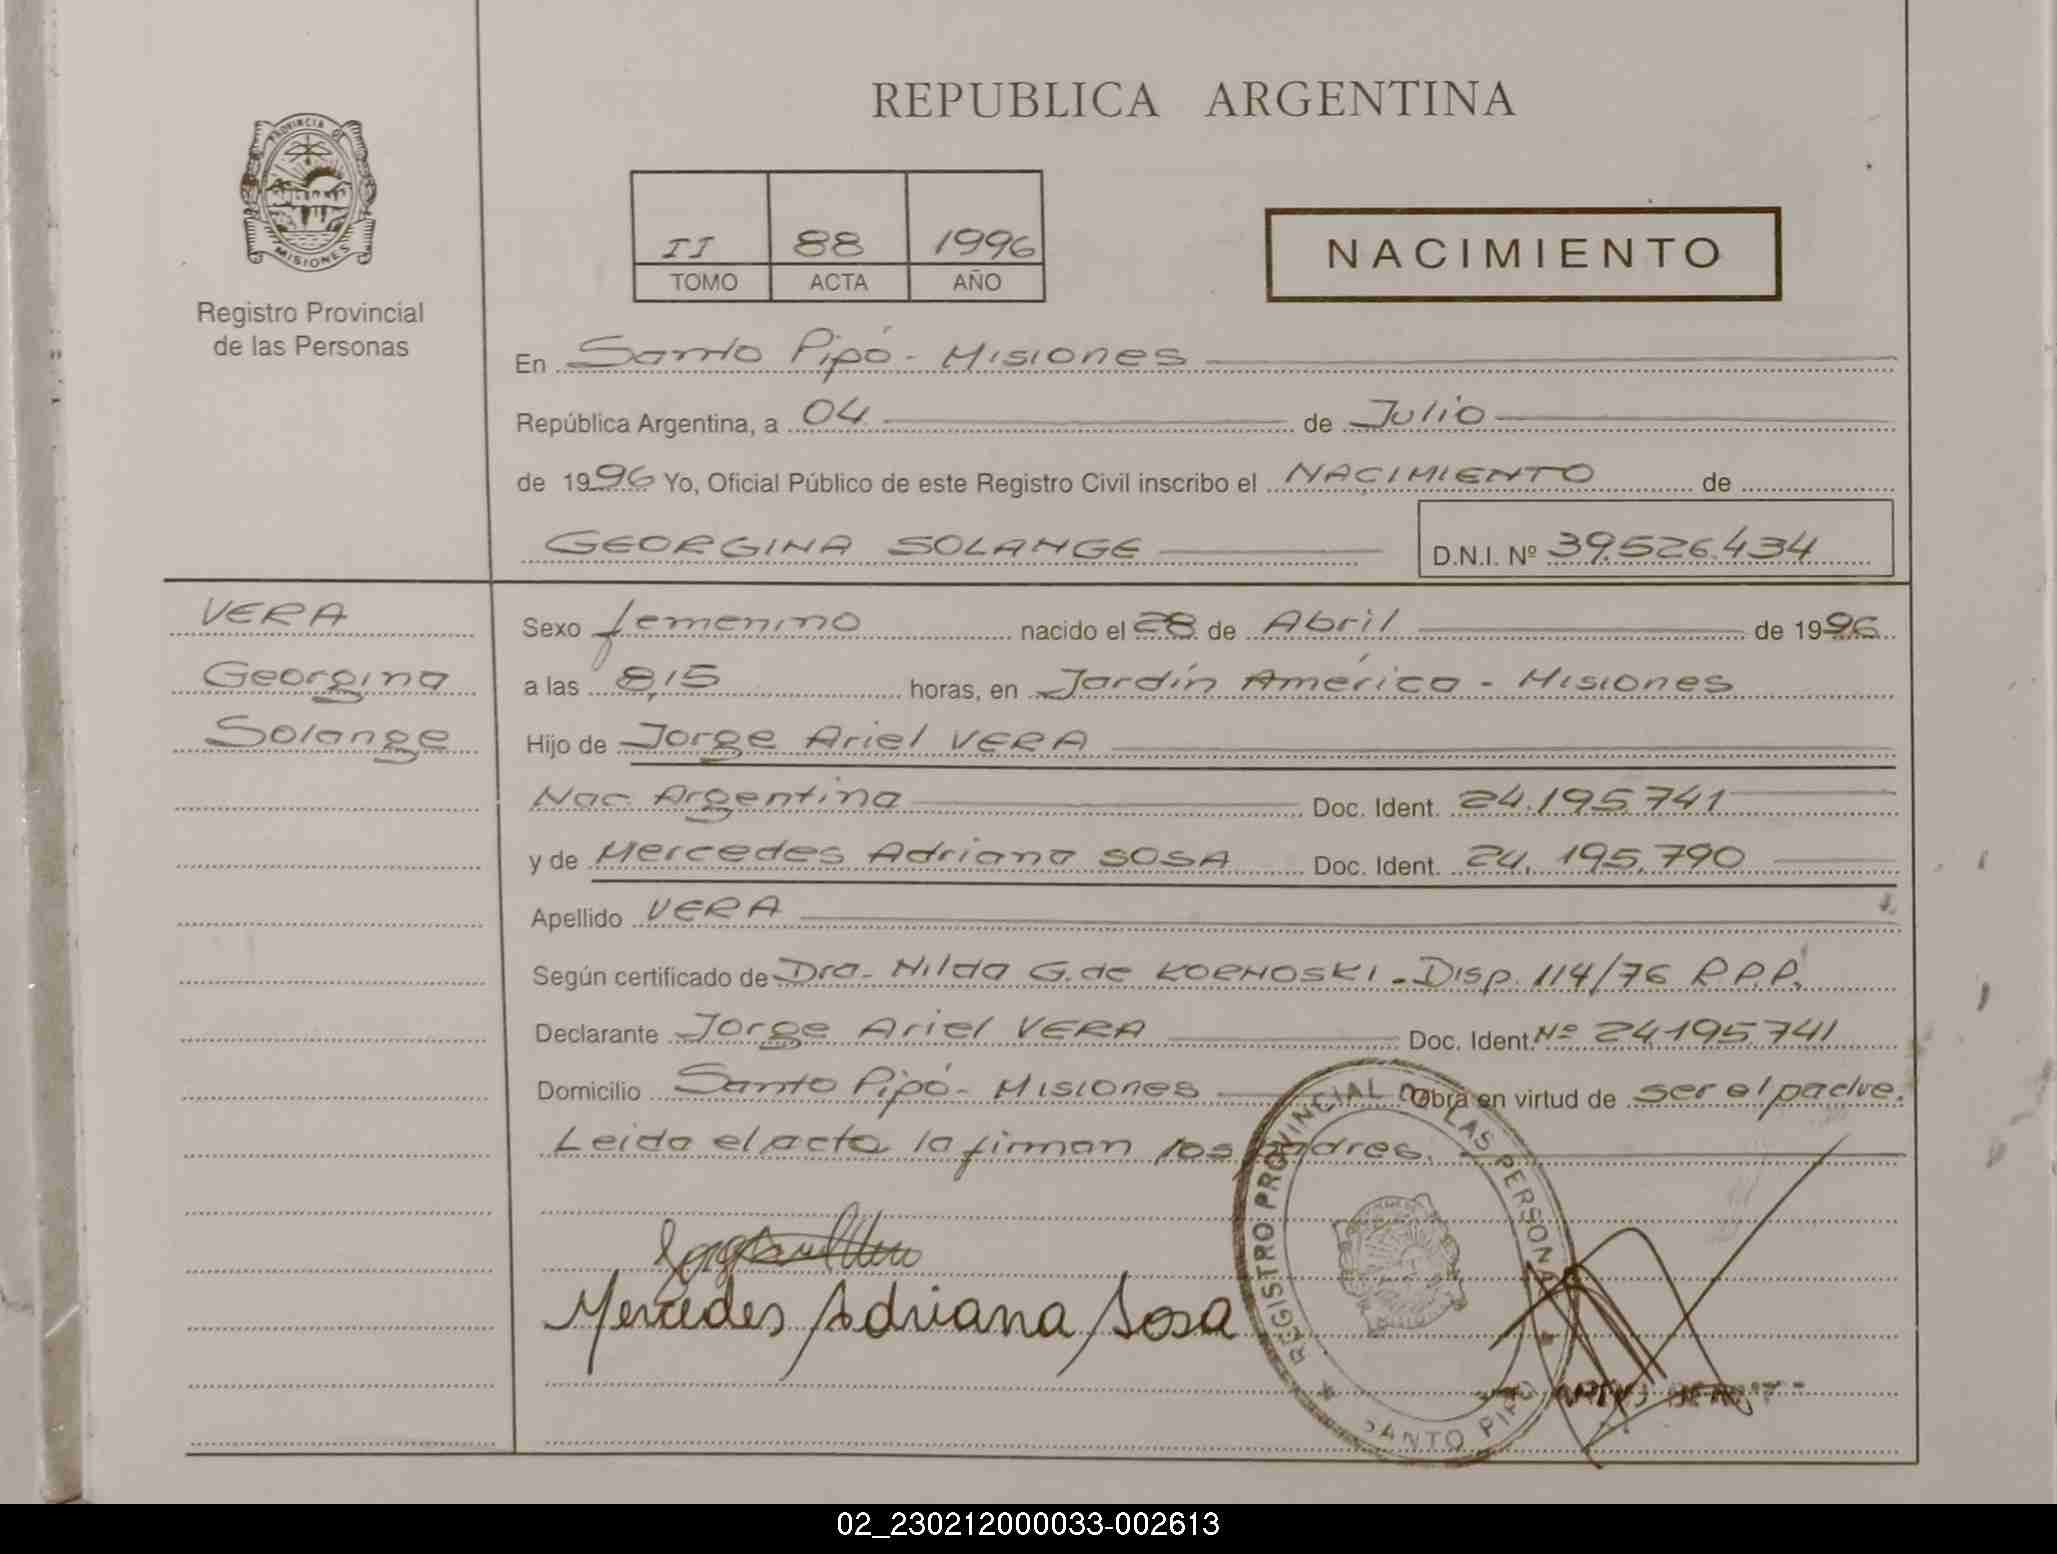 REPUBLICA ARGENTINA
PROVINCIA DE MISIONES
Registro Provincial
de las Personas
II 88 1996
TOMO ACTA AÑO
NACIMIENTO
En Santo Pipó - Misiones
República Argentina, a 04 de Julio
de 1996 Yo, Oficial Público de este Registro Civil inscribo el NACIMIENTO de
GEORGINA SOLANGE D.N.I. Nº 39.526.434
VERA
Georgina
Solange
Sexo femenino nacido el 28 de Abril de 1996
a las 8,15 horas, en Jardín América - Misiones
Hijo de Jorge Ariel VERA
Nac. Argentina Doc. Ident. 24.195.741
y de Mercedes Adriana SOSA Doc. Ident. 24.195.790
Apellido VERA
Según certificado de Dra. Nilda G. de KORNOSKI - Disp. 114/76 R.P.P.
Declarante Jorge Ariel VERA Doc. Ident. Nº 24.195.741
Domicilio Santo Pipó - Misiones Obra en virtud de ser el padre.
Leida el acta la firman los padres.
Mercedes Adriana Sosa
REGISTRO PROVINCIAL DE LAS PERSONAS
SANTO PIPO
02_230212000033-002613